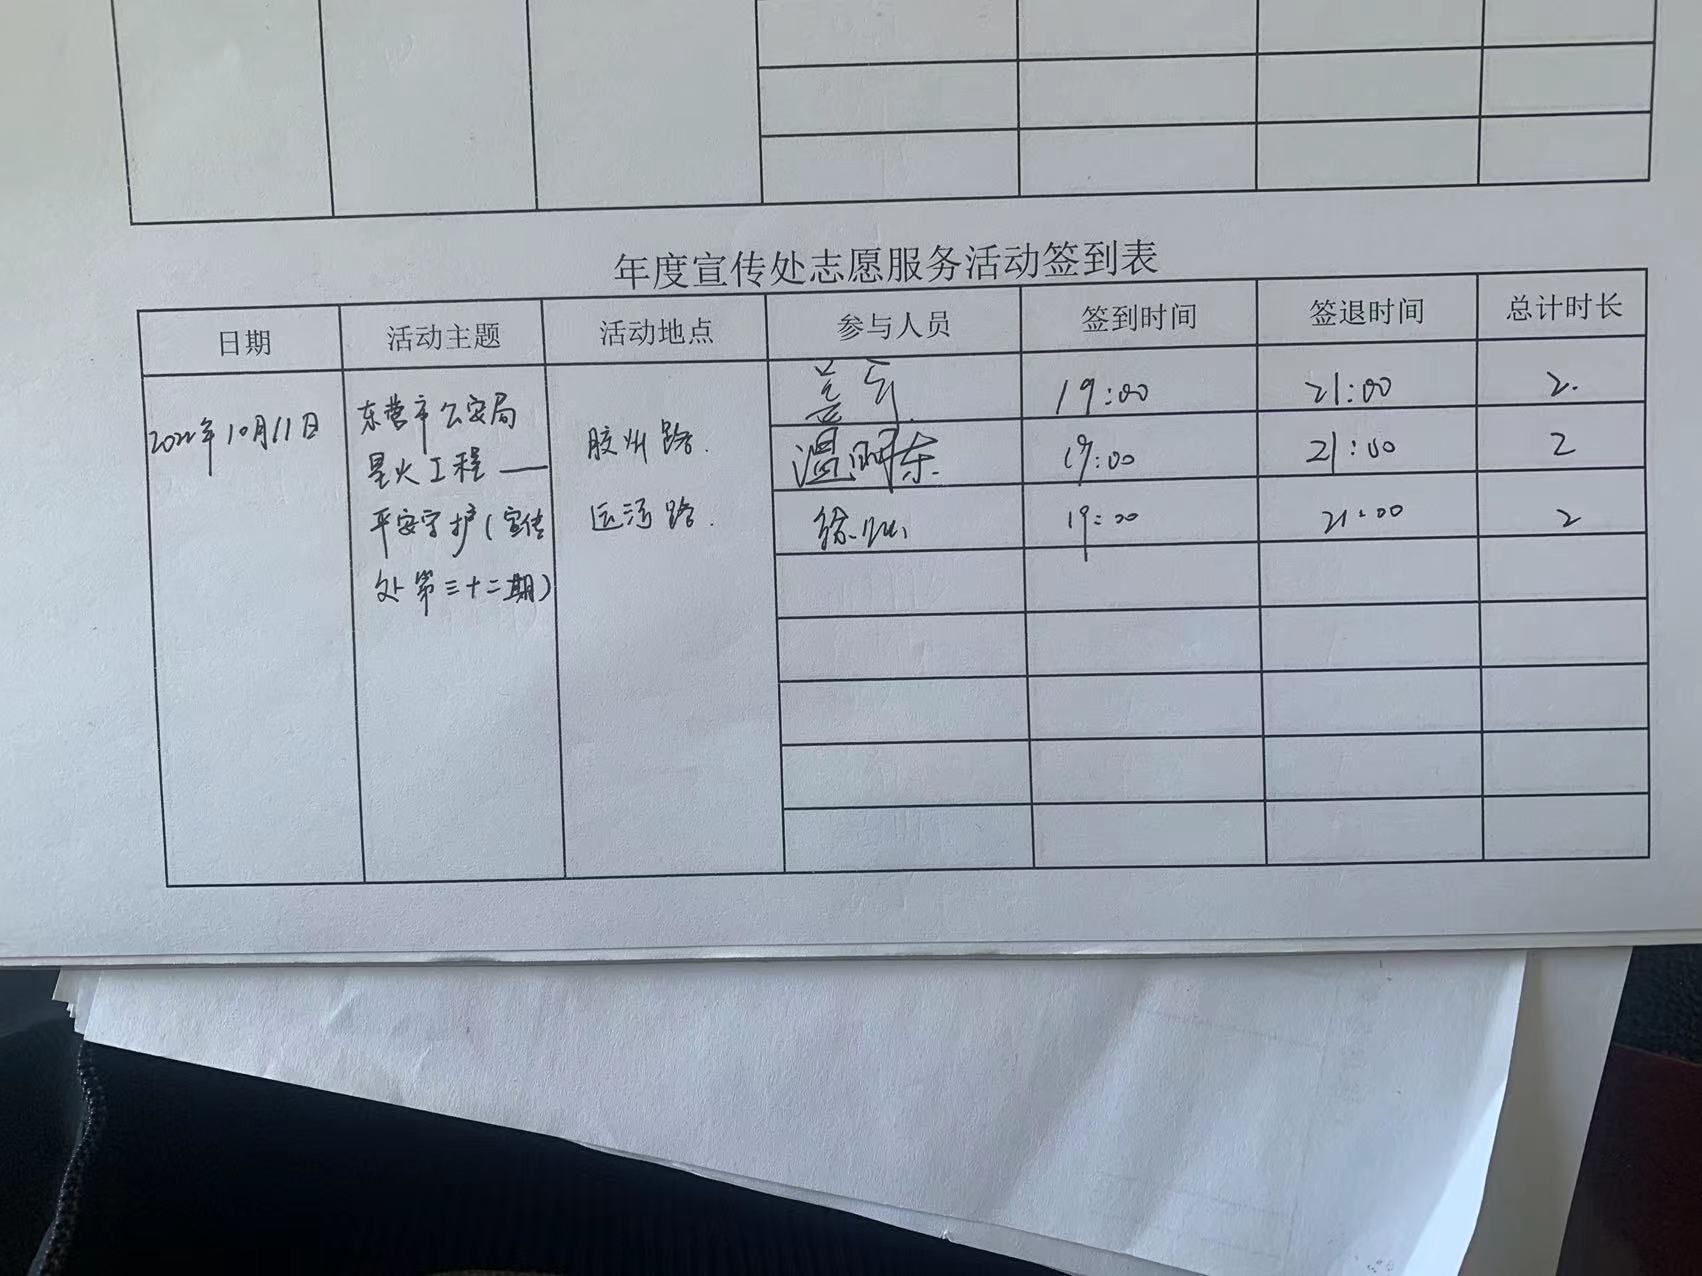 年度宣传处志愿服务活动签到表
日期 活动主题 活动地点 参与人员 签到时间 签退时间 总计时长
2022年10月11日
东营市公安局
星火工程——
平安守护（宣传
处第三十二期）
胶州路.
运河路.
19:00 21:00 2.
温明东 19:00 21:00 2
徐 19:00 21:00 2